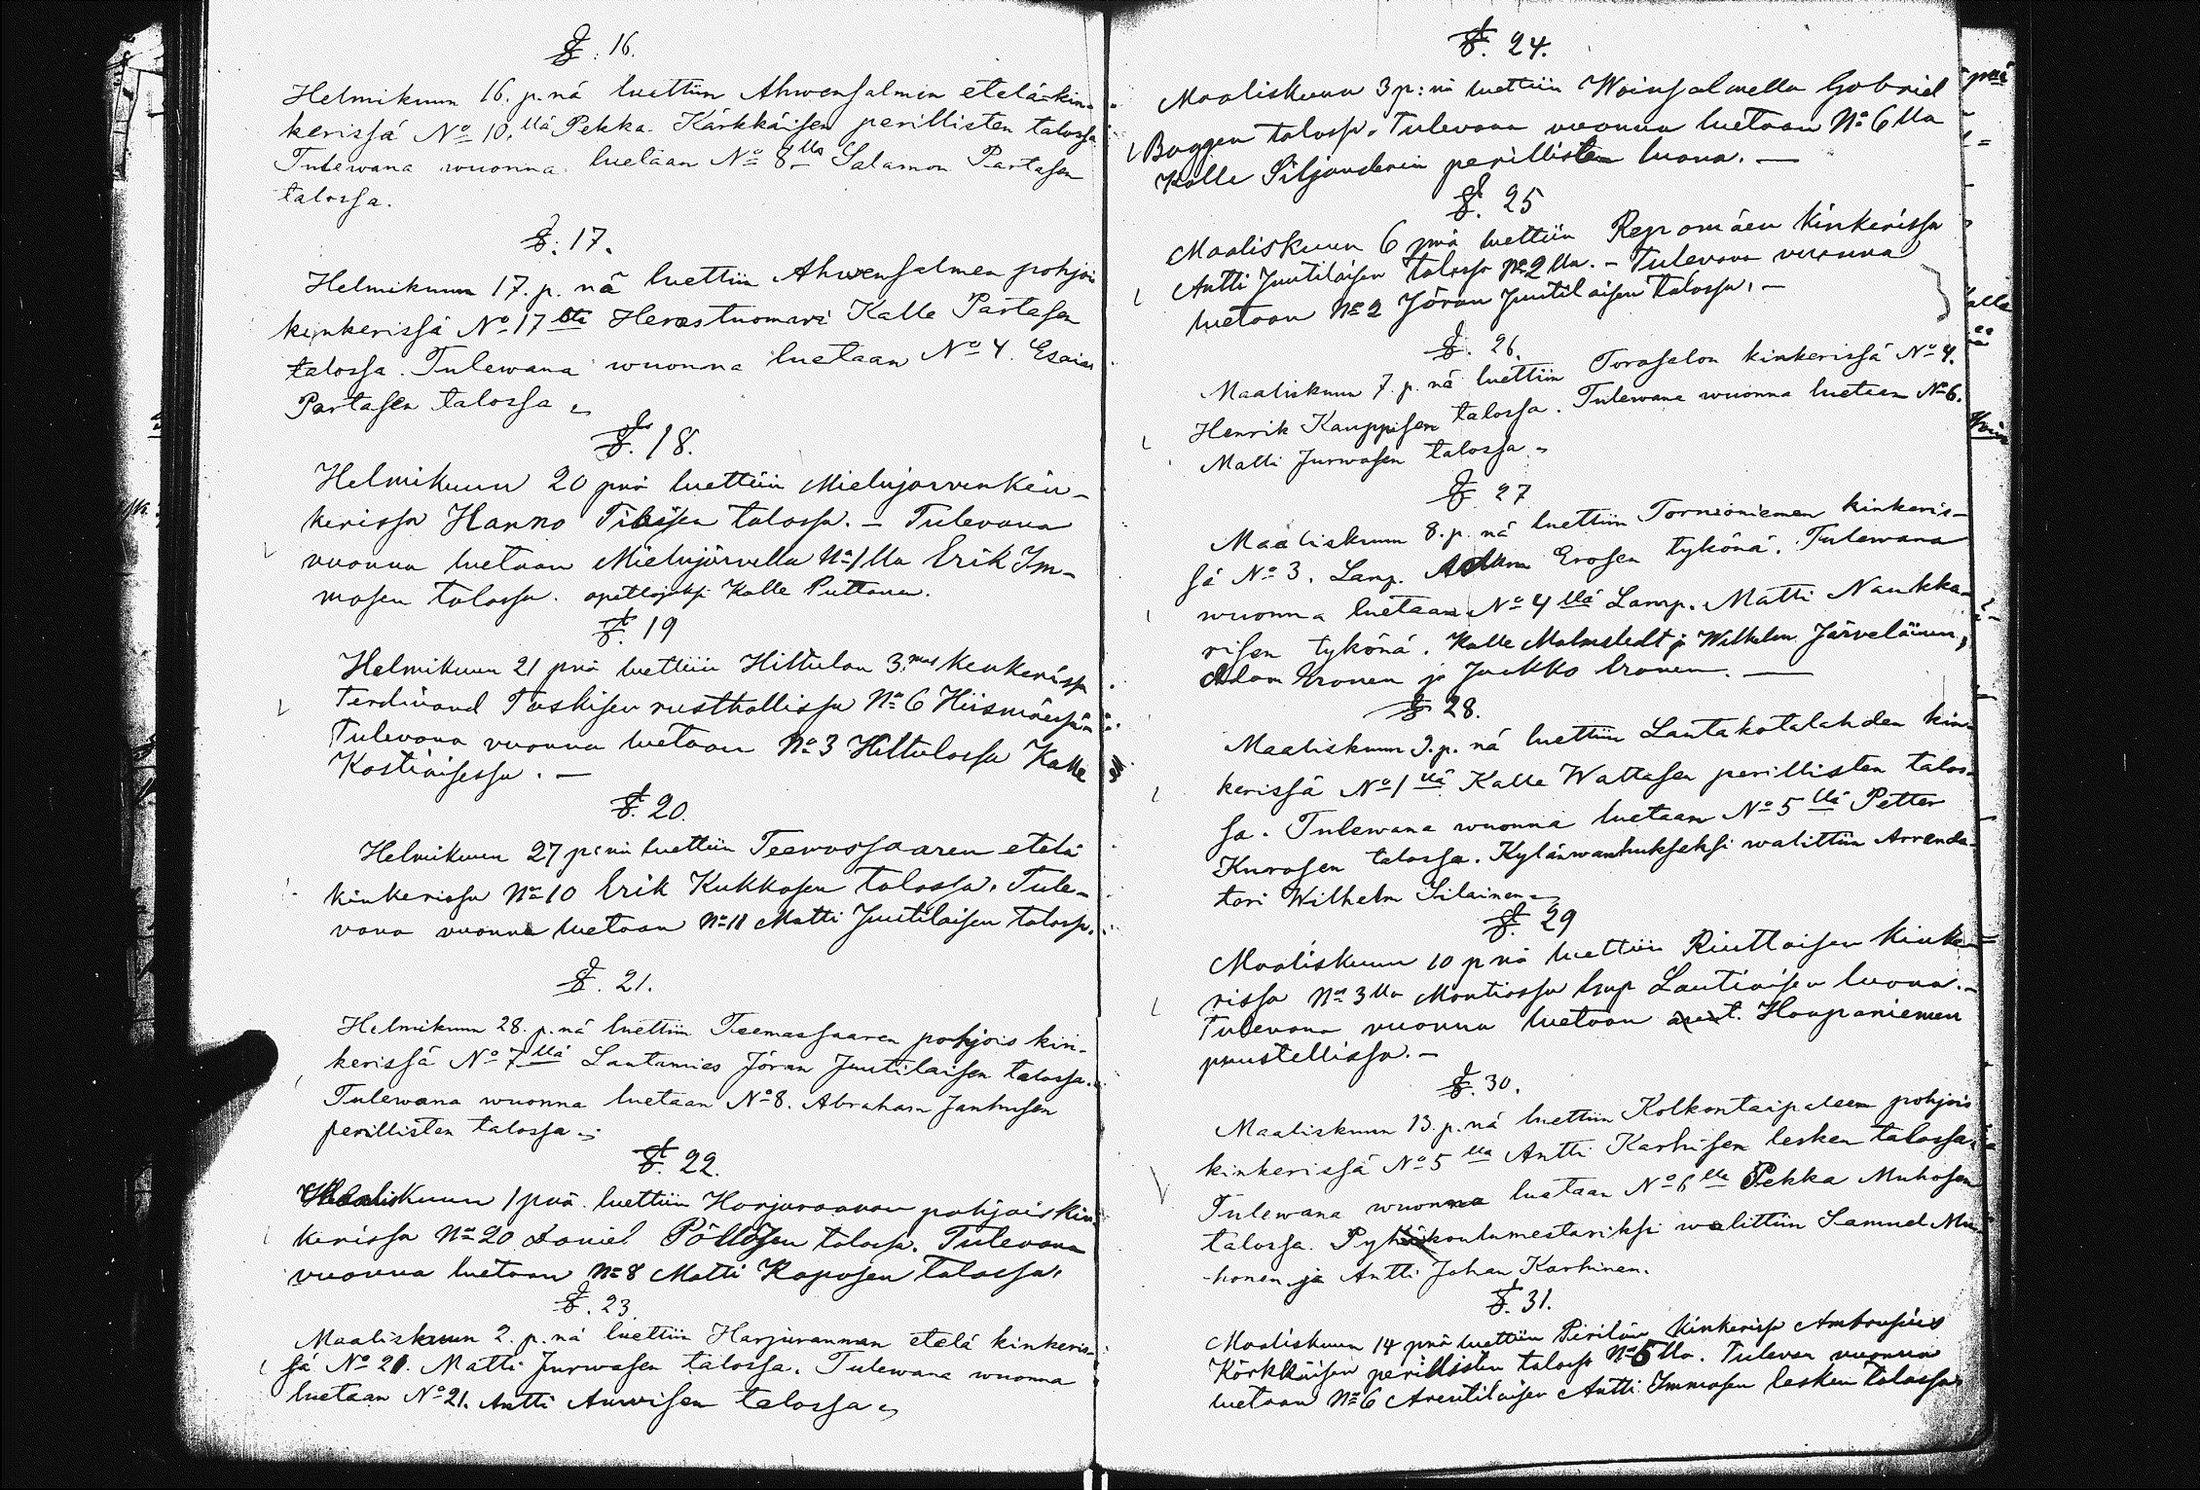 §. 16.
Helmikuun 16. p. nä luettiin Ahwensalmen etelä-kin-
kerissä No 10.llä Pekka Kärkkäisen perillisten talossa
Tulewana wuonna luetaan No 8lla Salamon Partasen
talossa.
§. 17.
Helmikuun 17. p. nä luettiin Ahwensalmen pohjois
kinkerissä No 17 llä Herastuomari Kalle Partasen
talossa. Tulewana wuonna luetaan No 4. Esaias
Partasen talossa
§. 18.
Helmikuun 20 pnä luettiin Mielujärven kin-
kerissa Hanno talossa. – Tulevana
vuonna luetaan Mielujärvella No 1 lla Erik Im-
mosen talossa. opettajaksi Kalle Puttonen.
§. 19
Helmikuun 21 pnä luettiin Hiltulan 3. kinkerissa
Ferdinand Taskisen rusthollissa No 6 Hiismäessä
Tulevana vuonna luetaan No 3 Hiltulassa Kalle
Kostiaisessa. –
§. 20.
Helmikuun 27 p:nä luettiin Teemassaaren etelä
kinkerissa No 10 Erik Kukkosen talossa. Tule-
vana vuonna luetaan No 11 Matti Juutilaisen talossa.
§. 21.
Helmikuun 28. p. nä luettiin Teemassaaren pohjois kin-
kerissä No 7 llä Lautamies Jöran Juutilaisen talossa.
Tulewana wuonna luetaan No 8. Abraham Janhusen
perillisten talossa.
§. 22.
Maaliskuun 1 pnä luettiin Harjurannan pohjois kin
kerissa No 20 Daniel Pöllösen talossa. Tulevana
vuonna luetaan No 8 Matti Kaposen talossa.
§. 23
Maaliskuun 2. p. nä luettiin Harjurannan etelä kinkeris-
sä No 20. Matti Jurwasen talossa. Tulewana wuonna
luetaan No 21. Antti Auwisen talossa
§. 24.
Maaliskuun 3 p:nä luettiin Woinsalmella Gabriel
Baggen talossa. Tulevana vuonna luetaan No 6 lla
Kalle Siljanderin perillisten luona. –
§. 25
Maaliskuun 6 pnä luettiin Repomäen kinkerissa
Antti Juutilaisen talossa No 2 lla. – Tulevana vuonna
luetaan No 2 Jöran Juutilaisen talossa. –
§. 26.
Maaliskuun 7. p. nä luettiin Torasalon kinkerissä No 4.
Henrik Kauppisen talossa. Tulewana wuonna luetaan No 6.
Matti Jurwasen talossa.
§. 27
Maaliskuun 8. p. nä luettiin Tornioniemen kinkeris-
sä No 3. Lamp. Adam Erosen tykönä. Tulewana
wuonna luetaan No 4 llä Lamp. Matti Naukka-
risen tykönä. Kalle Malmstedt ja Wilhelm Järveläinen,
Adam Eronen ja Jaakko Eronen. –
§. 28.
Maaliskuun 9. p. nä luettiin Lantakotalahden kin-
kerissä No 1 llä Kalle Wattasen perillisten talos-
sa. Tulewana wuonna luetaan No 5 llä Petter
Kurosen talossa. Kylänwanhukseksi walittiin Arrenda-
tori Wilhelm Silainen
§. 29
Maaliskuun 10 pnä luettiin Riuttaisen kinke-
rissa No 3 lla Montiossa Lautiaisen luona. –
Tulevana vuonna luetaan Haapaniemen
puustellissa. –
§. 30.
Maaliskuun 13. p. nä luettiin Kolkontaipaleen pohjois
kinkerissä No 5 lla Antti Karhisen lesken talossa.
Tulewana wuonna luetaan No 6 lla Pekka Muhosen
talossa. Pyhäkoulumestariksi walittiin Samuel Mu-
honen ja Antti Johan Karhinen.
§. 31.
Maaliskuun 14 pnä luettiin Pirilän kinkerissa Ambrosius
Kärkkäisen perillisten talossa No 5 lla. Tulevan vuonna
luetaan No 6 Antti Immosen lesken talossa